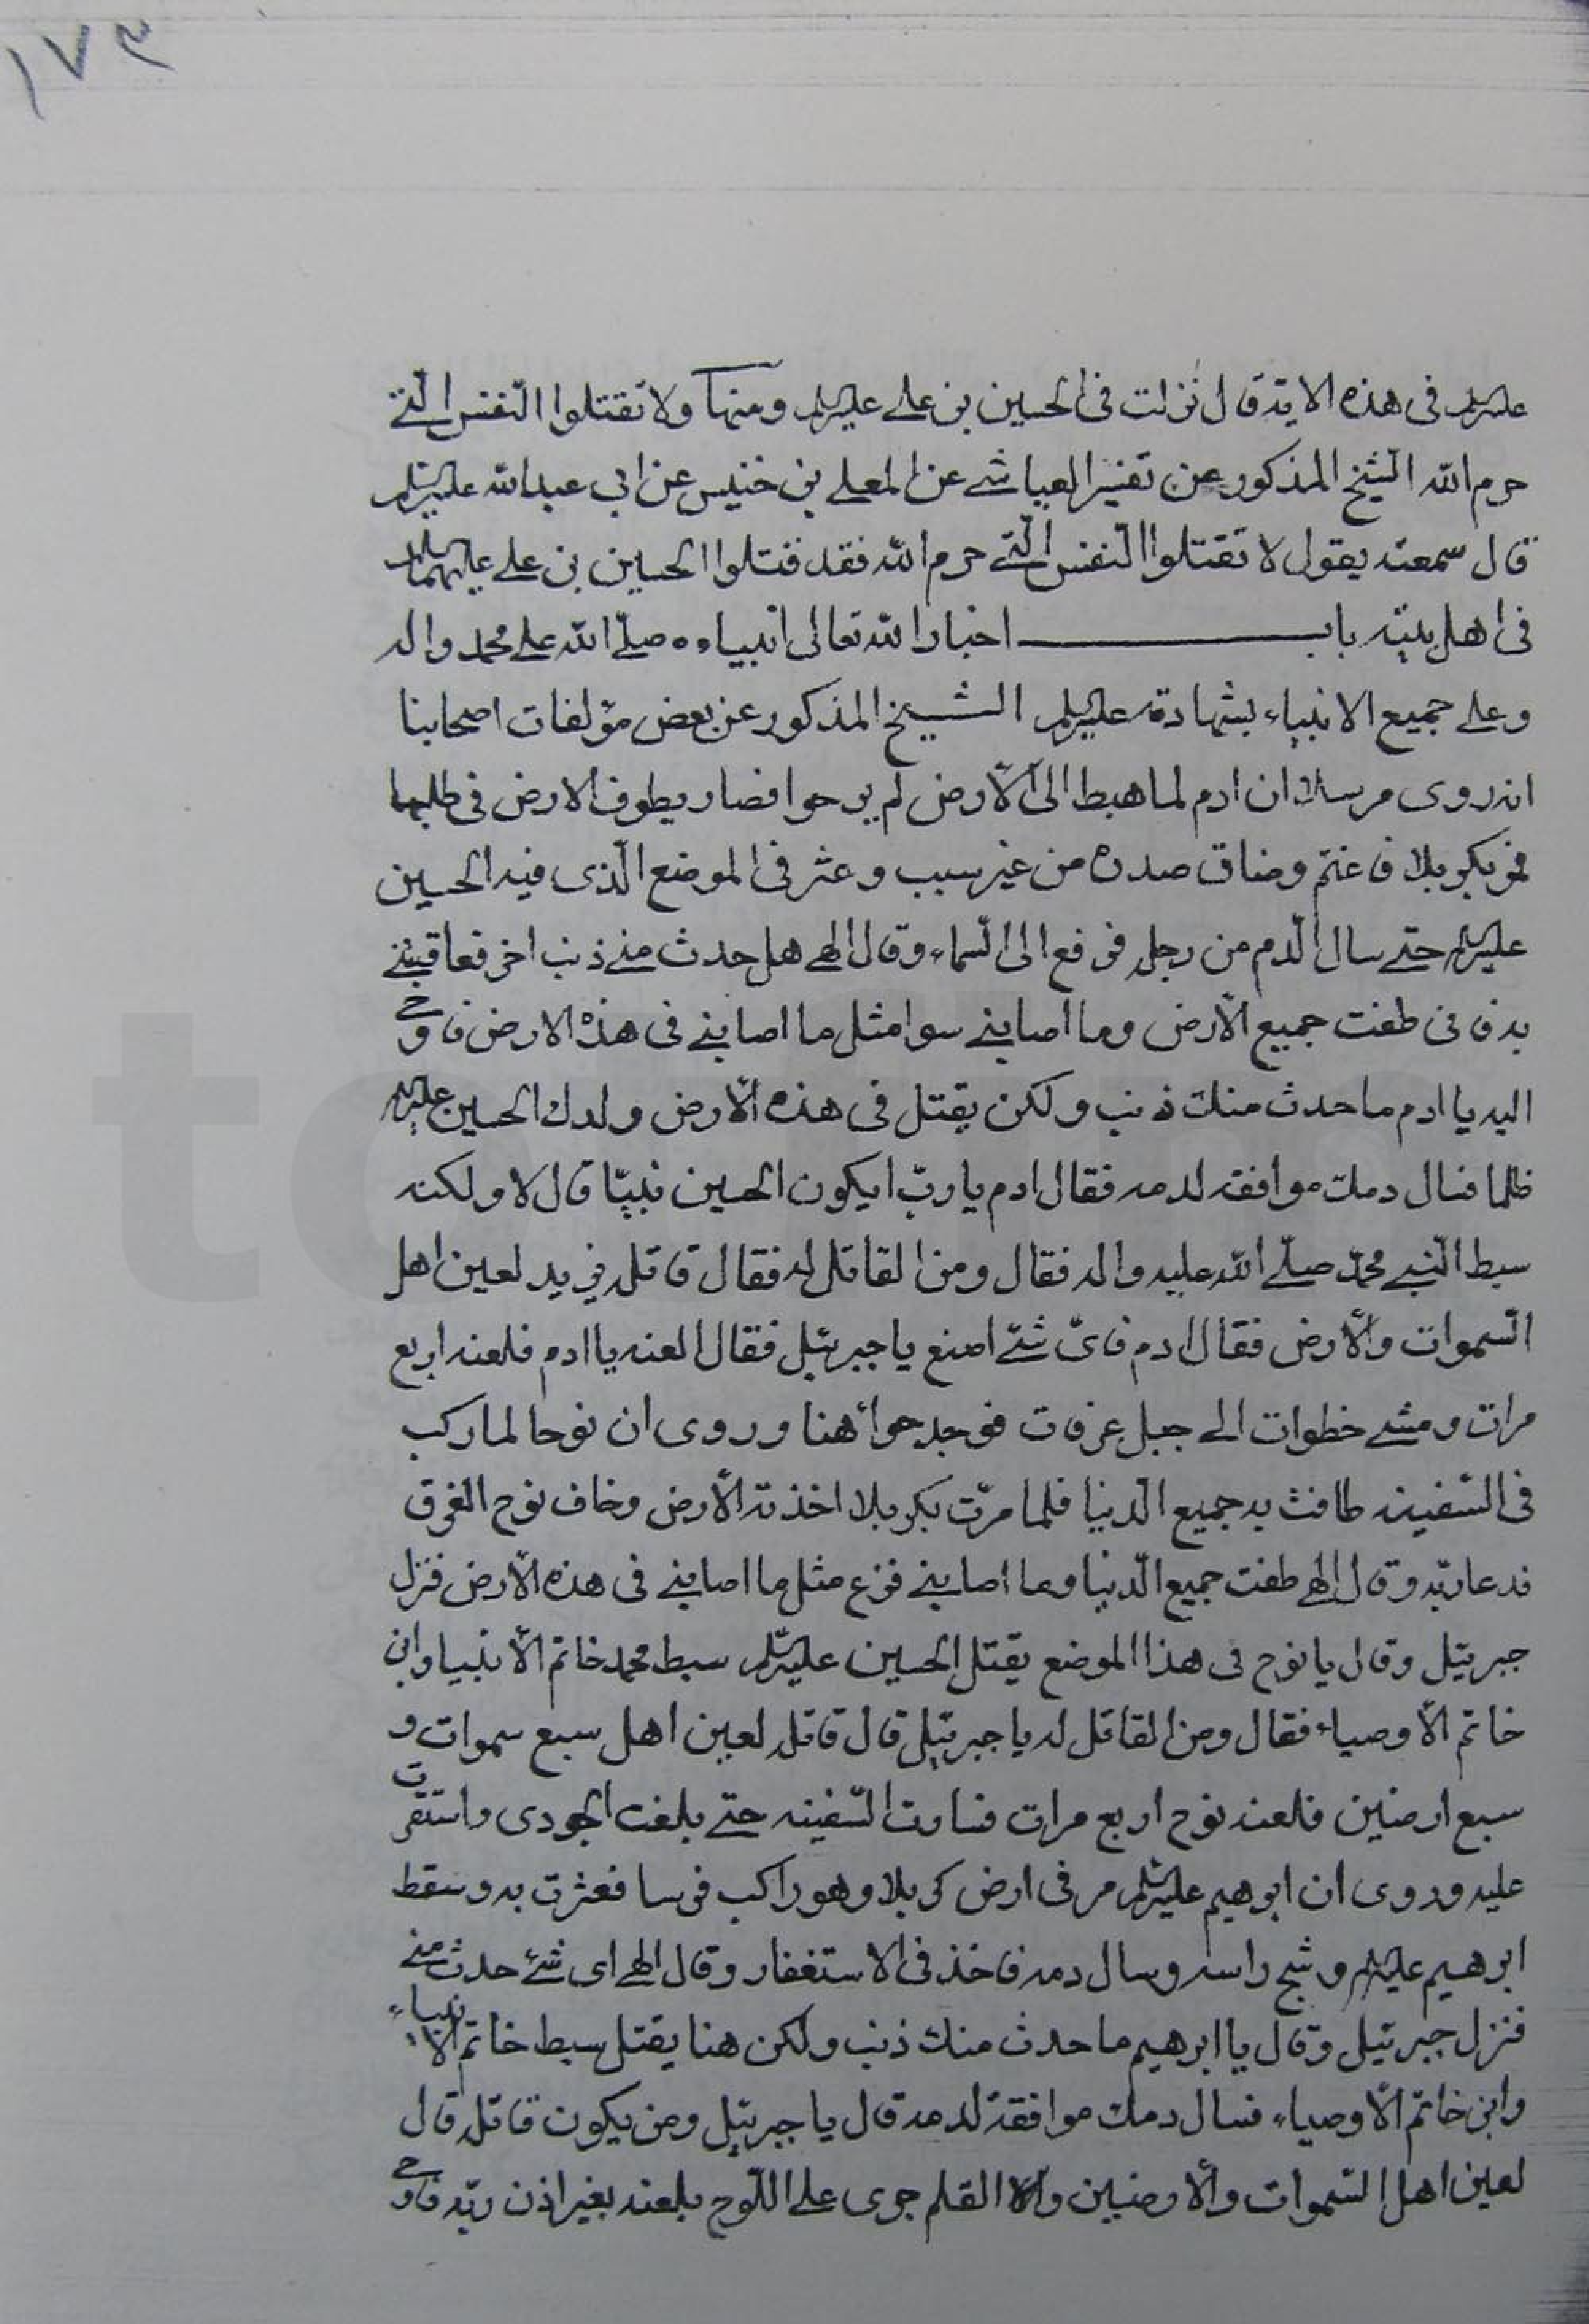 ١٧٣
عليه السلم فى هذه الاية قال نزلت فى الحسين بن على عليه السلم ومنها ولا تقتلوا النّفس الّتى
حرم الله الشيخ المذكور عن تفسير العياشى عن المعلى بن خنيس عن ابى عبدالله عليه السلم
قال سمعته يقول لا تقتلوا النّفس الّتى حرم الله فقد قتلوا الحسين بن على عليهما السلم
فى اهل بيته باب اخبار الله تعالى انبياءه صلّى الله على محمد واله
وعلى جميع الانبياء بشهادته عليه السلم الشيخ المذكور عن بعض مؤلفات اصحابنا
انه روى مرسلا ان ادم لما هبط الى الأرض لم ير حوا فصار يطوف الارض فى طلبها
فمر بكربلا فاغتم وضاق صدره من غير سبب وعثر فى الموضع الّذى فيه الحسين
عليه السلم حتى سال الّدم من رجله فرفع الى السّماء وقال الهى هل حدث منى ذنب اخر فعاقبتنى
به فانى طفت جميع الأرض وما اصابنى سوا مثل ما اصابنى فى هذه الارض فاوحى
اليه يا ادم ما حدث منك ذنب ولكن يقتل فى هذه الأرض ولدك الحسين عليه السلم
ظلما فسال دمك موافقه لدمه فقال ادم يا ربّ ايكون الحسين نبيّا قال لا ولكنه
سبط النّبى محمّد صلّى الله عليه واله فقال ومن القاتل له فقال قاتله يزيد لعين اهل
السّموات والأرض فقال ادم فاىّ شئ اصنع يا جبرئيل فقال العنه يا ادم فلعنه اربع
مرات ومشى خطوات الى جبل عرفات فوجد حوا هنا وروى ان نوحا لما ركب
فى السّفينه طافت به جميع الّدنيا فلما مرّت بكربلا اخذته الأرض وخاف نوح الغرق
فدعا ربّه وقال الهى طفت جميع الّدنيا وما اصابنى فزع مثل ما اصابنى فى هذه الأرض فنزل
جبرئيل وقال يا نوح فى هذا الموضع يقتل الحسين عليه السّلم سبط محمد خاتم الأنبيا وابن
خاتم الأوصياء فقال ومن القاتل له يا جبرئيل قال قاتله لعين اهل سبع سموات و
سبع ارضين فلعنه نوح اربع مرات فسارت السّفينه حتى بلغت الجودى واستقرت
عليه وروى ان ابرهيم عليه السّلم مر فى ارض كربلا وهو راكب فرسا فعثرت به وسقط
ابرهيم عليه السلم وشج راسه وسال دمه فاخذ فى الاستغفار وقال الهى اى شئ حدث منى
فنزل جبرئيل وقال يا ابرهيم ما حدث منك ذنب ولكن هنا يقتل سبط خاتم الأنبياء
وابن خاتم الأوصياء فسال دمك موافقة لدمه قال يا جبرئيل ومن يكون قاتله قال
لعين اهل السّموات والأرضين والقلم جرى على اللّوح بلعنه بغير اذن ربّه فاوحى